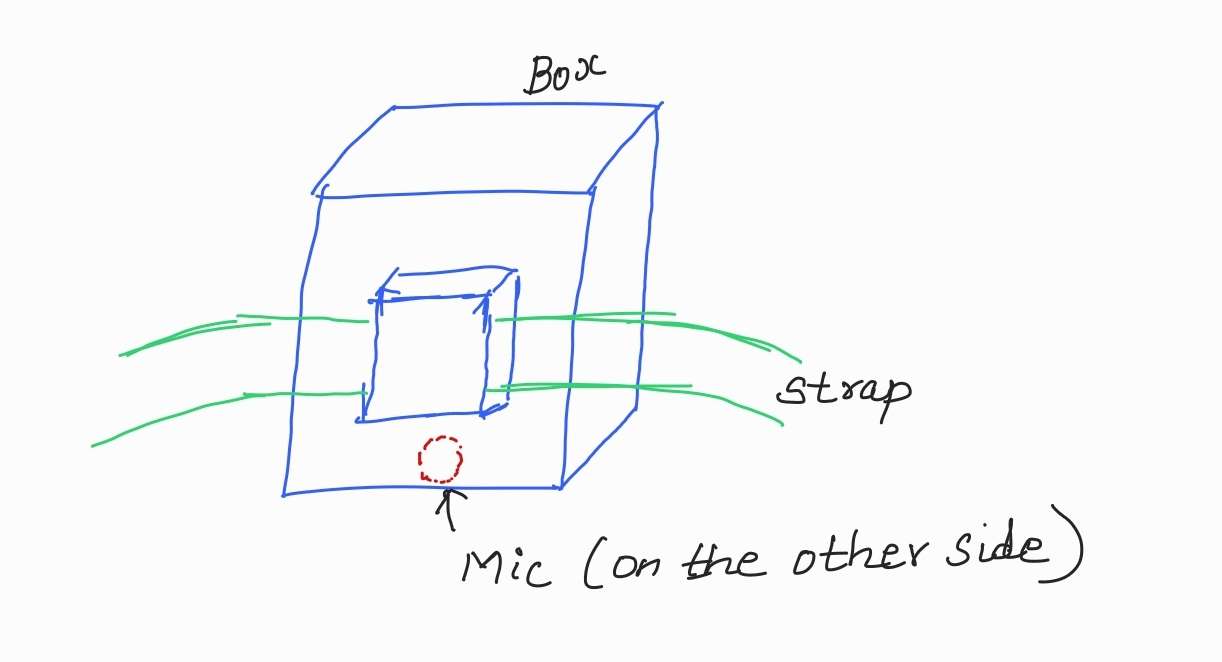 Box
strap
Mic (on the other side)